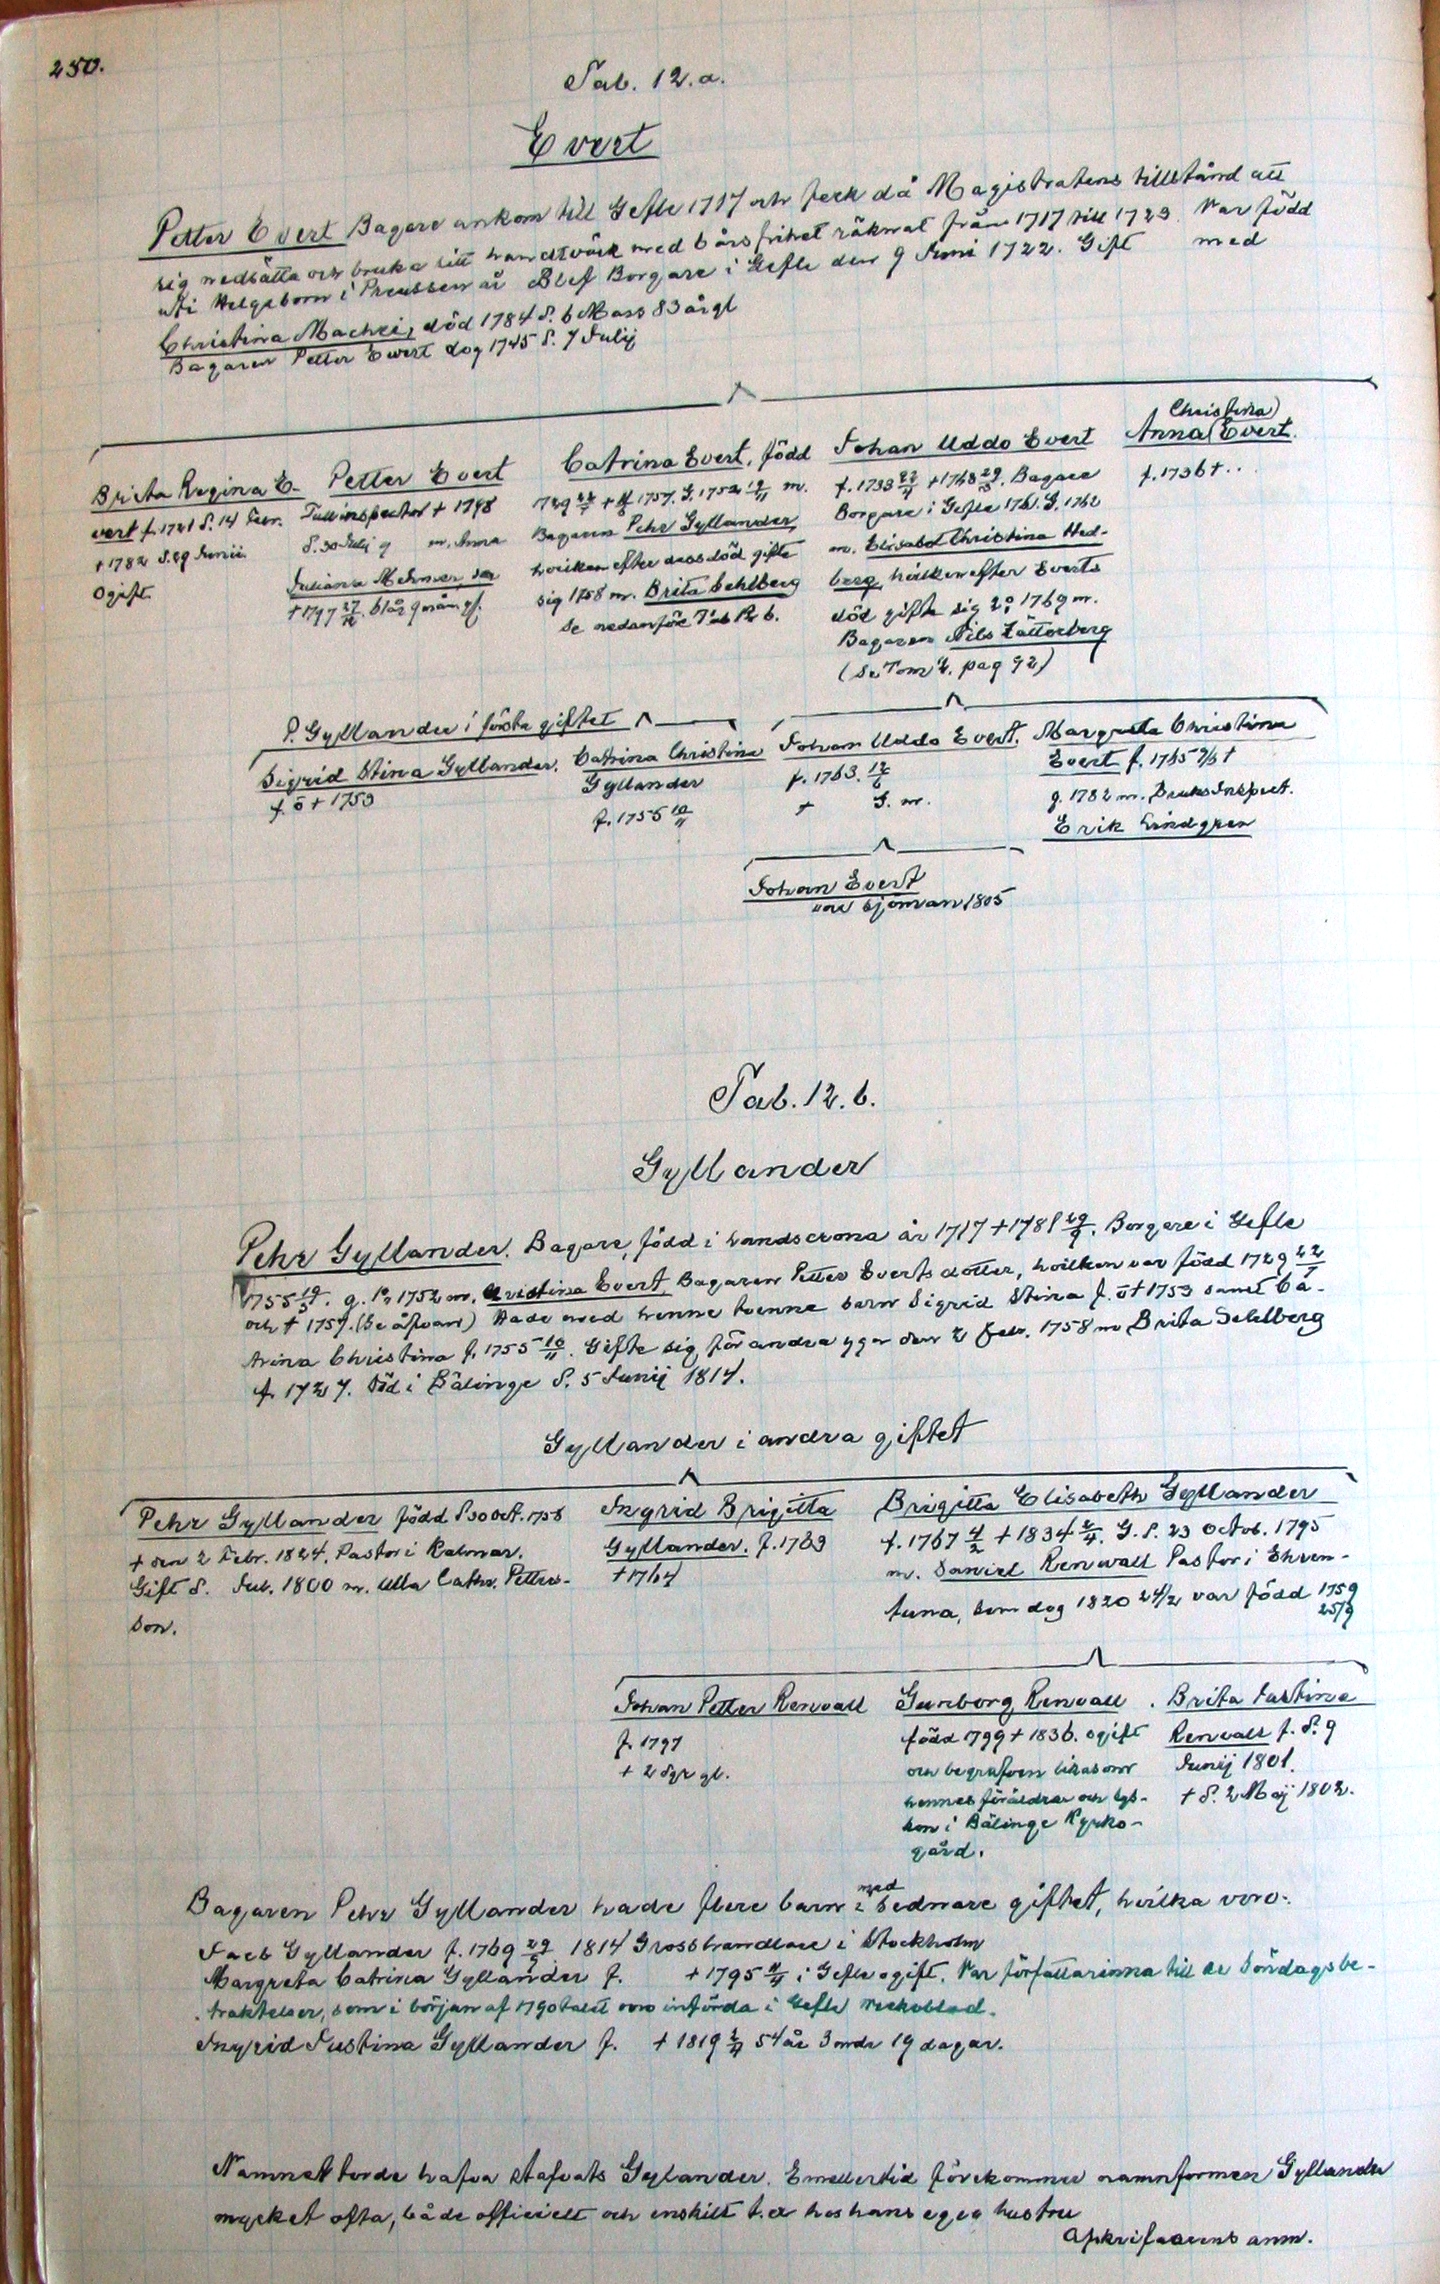 250.
Tab. 12. a.
Evert
Petter Evert Bagare ankom till Gefle 1717 och feck då Magistratens tillstånd att
sig nedsätta och bruka sitt handtvärk med 6 års frihet räknat från 1717 till 1723. Var född
uti i Preussen år Blef Borgare i Gefle den 9 Juni 1722. Gift med
Christina Machei, död 1784 d. 6 Mars 83 år gl
Bagaren Petter Ewert dog 1745 d. 7 Julij
Brita Regina E-
vert f. 1721 d. 14 Febr.
+ 1782 d. 29 Junii
Ogift.
Petter Evert
Tullinspector + 1798
d. 30 Julij g m. Anna
Juliana
+ 1797 27/12.
Catrina Evert, född
1729 22/7 + 1757. G. 1752 m.
Bagaren Pehr Gyllander,
hvilken efter dess död gifte
sig 1758 m. Brita Sehlberg
Se nedanföre Tab 12 b.
Johan Uddo Evert
f. 1733 22/4 + 1768 29/3. Bagare
Borgare i Gefle 1761. G. 1762
m. Elisabet Christina Hed-
berg, hvilken efter Everts
död gifte sig 2o 1769 m.
Bagaren Nils Zätterberg
(Se Tom 4. pag 92)
Christina)
Anna (Evert.
f. 1736 + . .
P. Gyllander i första giftet
Sigrid Stina Gyllander.
f. o + 1753
Catrina Christina
Gyllander
f. 1755 10/11
Johan Uddo Evert.
f. 1763. 12/6
+ G. m.
Margreta Christina
Evert f. 1765 2/6 +
g. 1782 m. Bruks Inspect.
Erik Lindgren
Johan Evert
var sjöman 1805
Tab. 12. b.
Gyllander
Pehr Gyllander. Bagare, född i Landscrona år 1717 + 1781 29/9. Borgare i Gefle
1755 19/3. g. 1o 1752 m. Christina Evert, Bagaren Petter Everts dotter, hvilken var född 1729 22/7
och + 1757. (Se åfvan) Hade med henne tvenne barn Sigrid Stina f. o + 1753 samt Ca-
trina Christina f. 1755 10/11. Gifte sig för andra ggn den 2 Febr. 1758 m Brita Sehlberg
f. 1727. Död i Bälinge d. 5 Junij 1814.
Gyllander i andra giftet
Pehr Gyllander född d. 30 Oct. 1758
+ den 2 Febr. 1824. Pastor i Kalmar.
Gift d. Jul. 1800 m. Ulla Cathr. Petters-
son.
Ingrid Brigitta
Gyllander. f. 1763
+ 1764
Brigitta Elisabeth Gyllander
f. 1767 4/2 + 1834 2/4. G. d. 23 Octob. 1795
m. Daniel Renwall Pastor i Ehren-
tuna, som dog 1820 24/2 var född 1759
25/9
Johan Petter Renvall
f. 1797
+ 2 dgr gl.
Gunborg Renvall
född 1799 + 1836. ogift
och begrafven likasom
hennes föräldrar och sys-
kon i Bälinge Kyrko-
gård.
Brita Justina
Renvall f. d. 9
Junij 1801.
+ d. 2 Maj 1802.
med
Bagaren Pehr Gyllander hade flere barn i sednare giftet, hvilka voro:
Jacb Gyllander f. 1769 29/5 1814 Grosshandlare i Stockholm
Margreta Catrina Gyllander f. + 1795 11/4 i Gefle ogift. Var författarinna till de Söndagsbe-
traktelser, som i början af 1790 talet voro införda i Gefle Veckoblad.
Ingrid Justina Gyllander f. + 1819 2/4 54 år 3 mdr 19 dagar.
Namnet torde hafva stafvats Gylander. Emellertid förekommer namnformen Gyllander
mycket ofta, både officielt och enskilt t. ex hos hans egen hustru
Afskrifvarens anm.